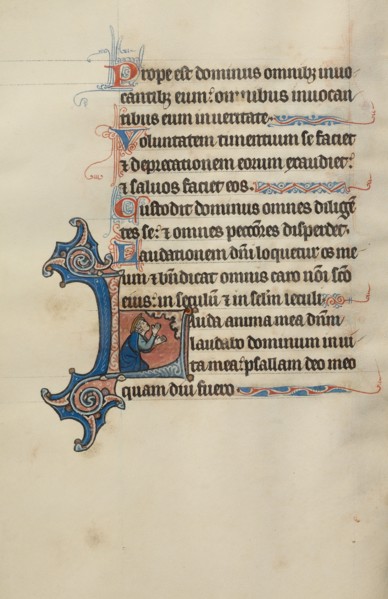 Prope est dominus omnibꝫ inuo
cantibꝫ eum: omnibus inuocan
tibus eum in ueritate.
Voluntatem timentium se faciet
⁊ deprecationem eorum exaudiet:
⁊ saluos faciet eos.
Custodit dominus omnes diligē
tes se: ⁊ omnes peccōres disperdet.
Laudationem dn̄i loquetur os me
um ⁊ bn̄dicat omnis caro nōi scō
eius: in seculū ⁊ in sclm̄ seculi.
Lauda anima mea dn̄m
laudabo dominum in ui
ta mea: psallam deo meo
quam diu fuero